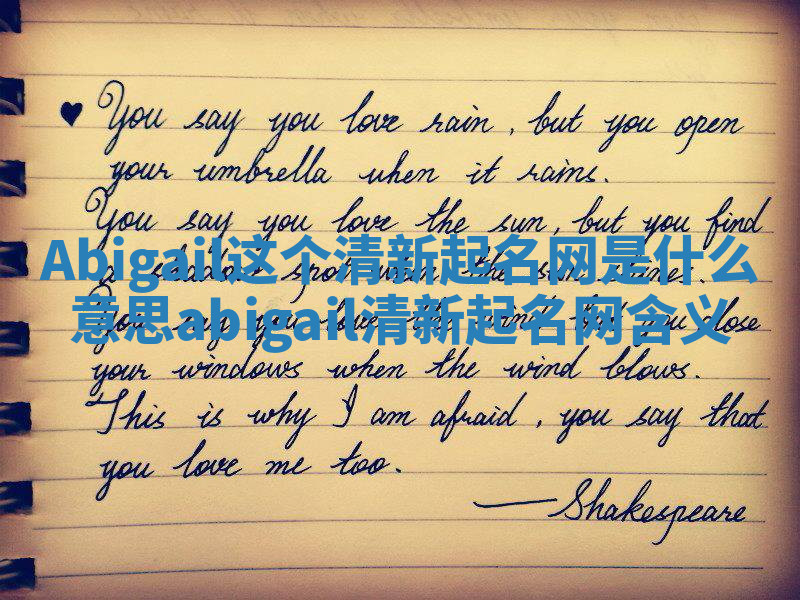 ♥ You say you love rain, but you open
your umbrella when it rains.
You say you love the sun, but you find
Abigail这个清新起名网是什么
a shadow spot when the sun shines.
意思abigail清新起名网含义
You say you love the wind but you close
your windows when the wind blows.
This is why I am afraid, you say that
you love me too.
—Shakespeare